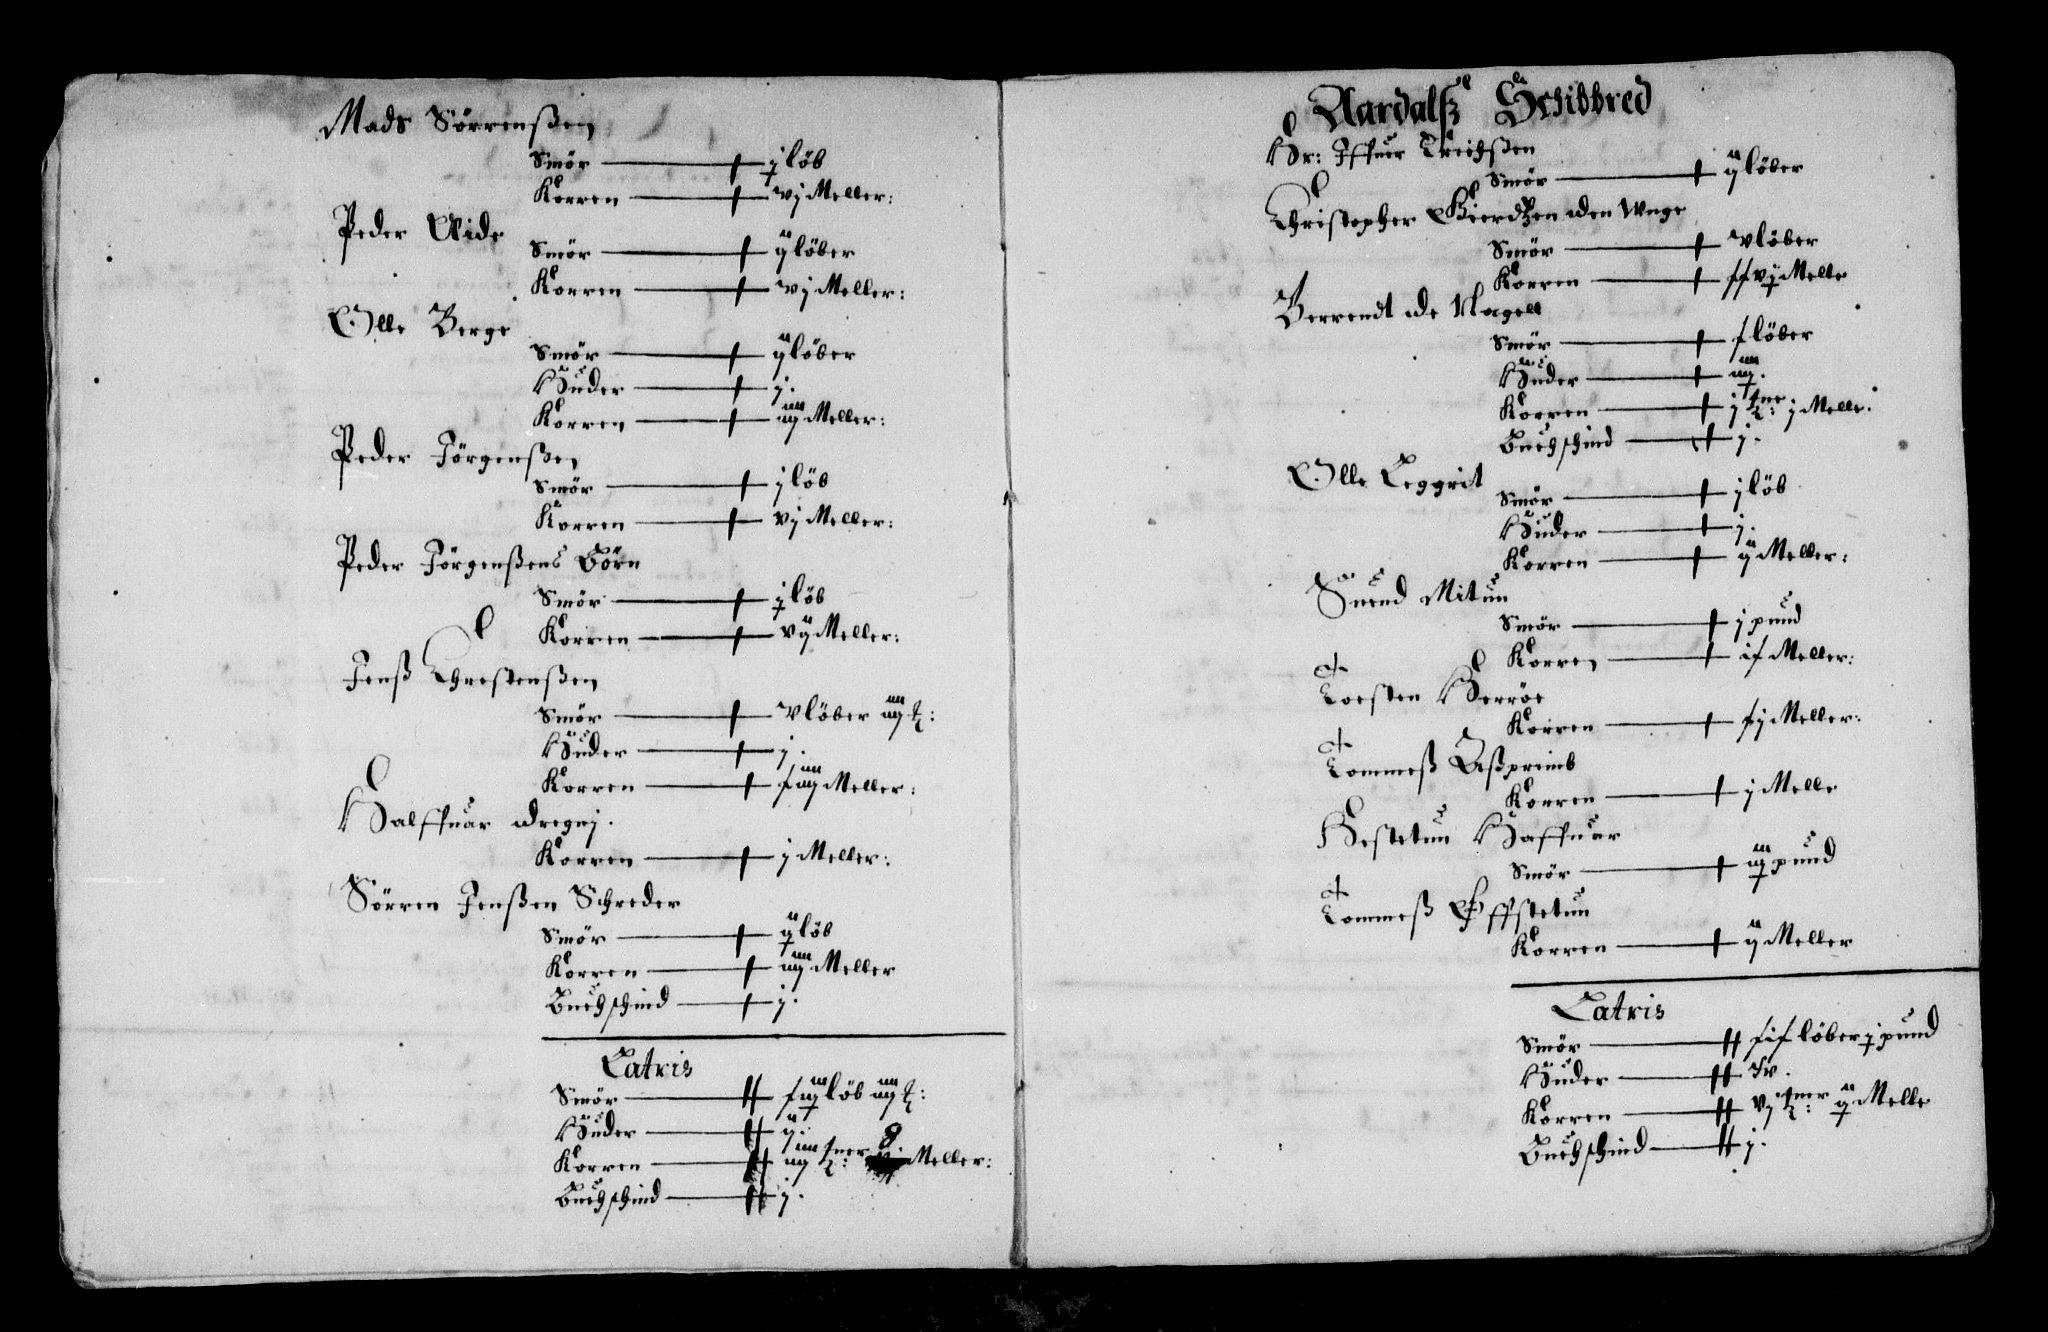 Mads Sørrenßen
Smör — j löb
Korren — vj Meller:
Peder Eide
Smör — ij löber
Korren — vj Meller:
Olle Berge
Smör — ij löber
Huder — j.
Korren — iiij Meller:
Peder Jörgenßen
Smör — j löb
Korren — vj Meller:
Peder Jörgenßens Börn
Smör — j löb
Korren — vij Meller:
Jenß Chrestenßen
Smör — v löber iiij
Huder — j.
Korren — xiiij Meller:
Halffuar
Korren — j Meller:
Sörren Jenßen Schreder
Smör — ij löb
Korren — iiij Meller
Buchschind — j.
Latris
Smör — löb iiij
Huder — ij.
Korren — iiij tner 8 Meller:
Buchschind — j.
Aardalß Schibbred
Hr: Iffuer Erichßen
Smör — ij löber
Christopher Gierdtzen den Unge
Smör — v löber
Korren — xxvj Melle
Berrendt de Nagell
Smör — x löber
Huder — iiij.
Korren — j tner: j Melle.
Buchschind — j.
Olle Leggrit
Smör — j löb
Huder — j.
Korren — ij Meller:
Suend Mitun
Smör — j pund
Korren — ix Meller:
Torsten Herröe
Korren — xj Meller:
Tommeß
Korren — j Melle
Hestetun Haffuar
Smör — pund
Tommeß Offstetun
Korren — ij Meller
Latris
Smör — xix löber j pund
Huder — Iv.
Korren — vj tner: ij Melle
Buchschind — j.